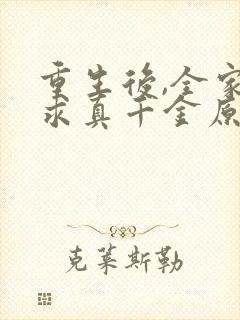 重生後,全家
求真千金原
克萊斯勒